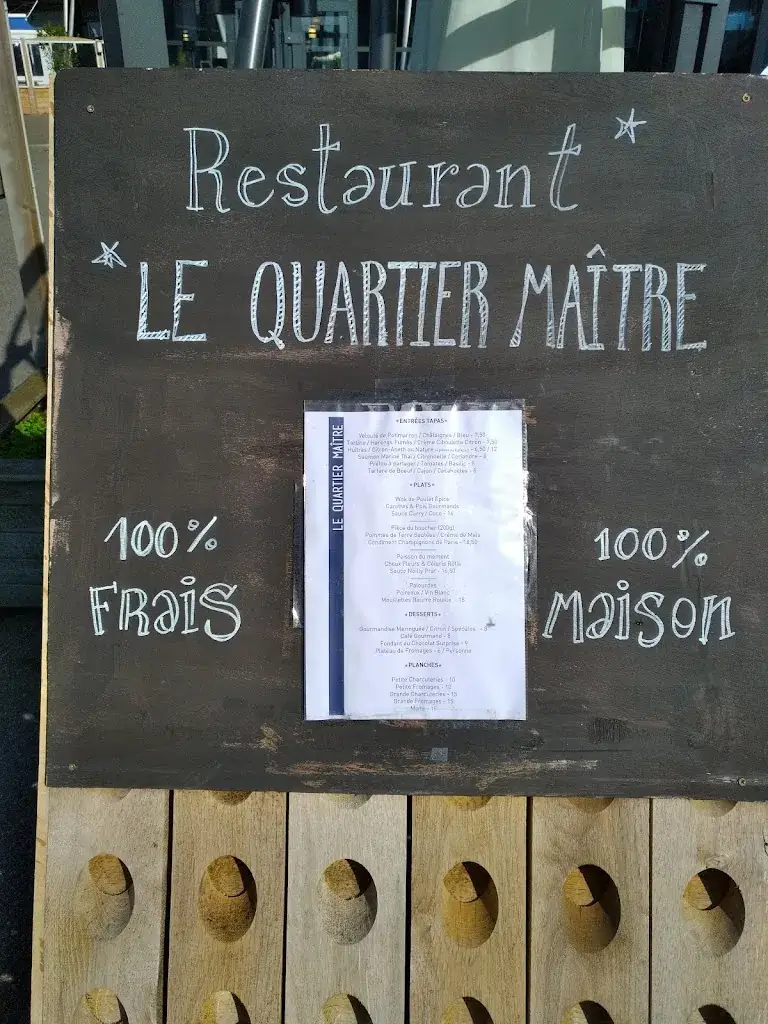 Restaurant
LE QUARTIER MAÎTRE
100%
FRAIS
100%
MAISON
LE QUARTIER MAÎTRE
•ENTRÉES TAPAS•
Velouté de Potimarron / Châtaignes / Bleu - 7,50
Tartine / Harengs Fumés / Crème Ciboulette Citron - 7,50
Huîtres / Citron-Aneth ou Nature - 6,50 / 12
Saumon Mariné Thaï / Citronnelle / Coriandre - 8
Pretos à partager / Tomates / Basilic - 5
Tartare de Boeuf / Cajun / Cacahuètes - 8
•PLATS•
Wok de Poulet Épicé
Carottes & Pois Gourmands
Sauce Curry / Coco - 14
Pièce du boucher (200g)
Pommes de Terre Sautées / Crème de Maïs
Condiment Champignons de Paris - 16,50
Poisson du moment
Choux Fleurs & Céleris Rôtis
Sauce Noilly Prat - 16,50
Palourdes
Poireaux / Vin Blanc
Mouillettes Beurre Rouille - 15
•DESSERTS•
Gourmandise Meringuée / Citron / Spéculos - 8
Café Gourmand - 8
Fondant au Chocolat Surprise - 9
Plateau de Fromages - 6 / Personne
•PLANCHES•
Petite Charcuteries - 10
Petite Fromages - 10
Grande Charcuteries - 15
Grande Fromages - 15
Mixte - 15